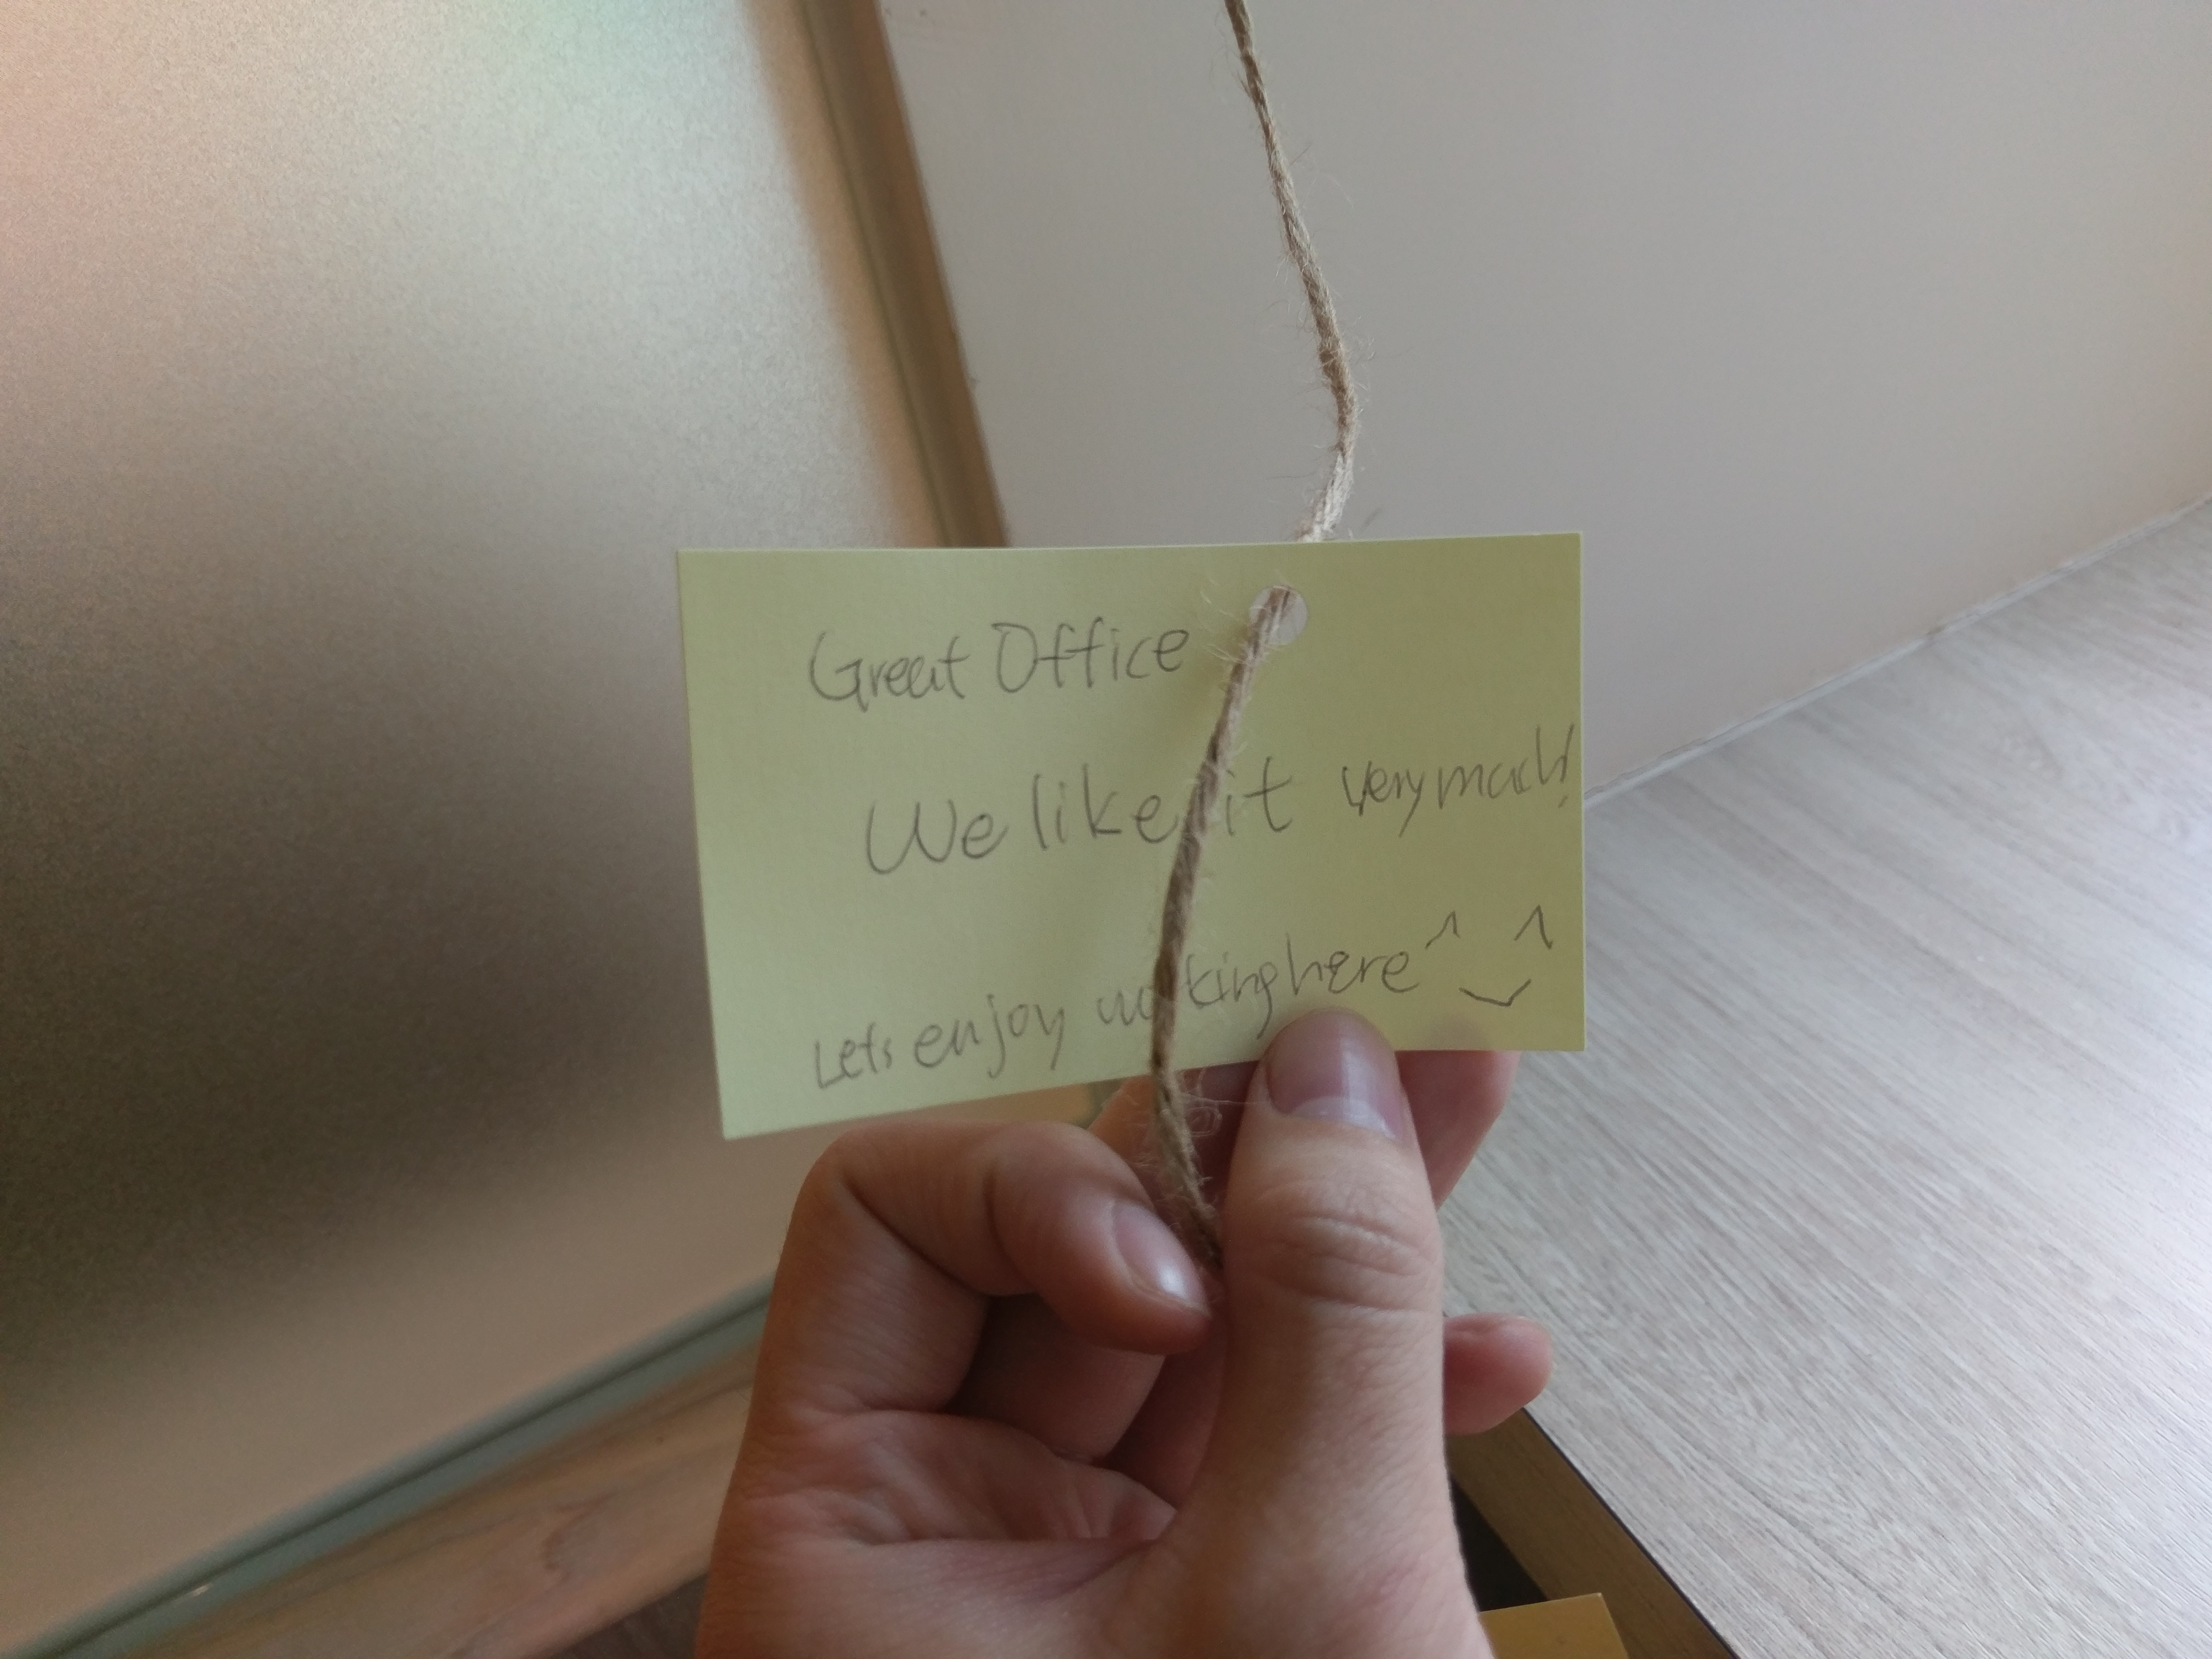 Great Office
We like it very much!
Lets enjoy working here ^‿^